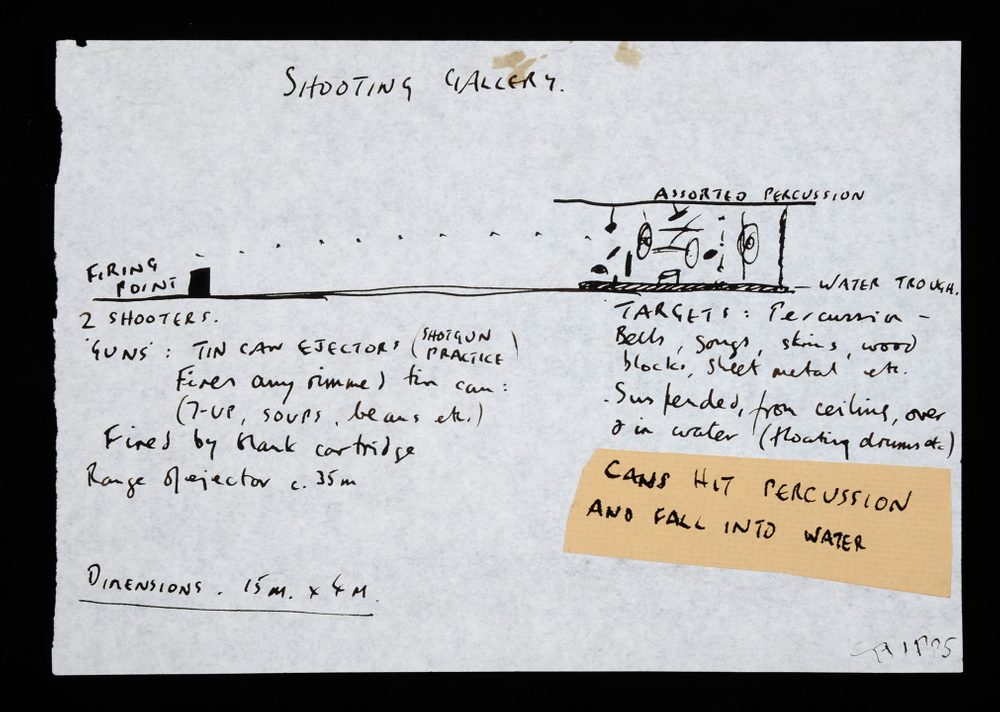 SHOOTING GALLERY.
ASSORTED PERCUSSION
FIRING
POINT
WATER TROUGH.
2 SHOOTERS.
'GUNS' : TIN CAN EJECTORS (SHOTGUN
PRACTICE)
Fires any rimmed tin can :
(7-UP, SOUPS, beans etc.)
Fired by blank cartridge
Range of ejector c. 35m
TARGETS : Percussion –
Bells, gongs, skins, wood
blocks, sheet metal etc.
Suspended, from ceiling, over
& in water (floating drums etc)
CANS HIT PERCUSSION
AND FALL INTO WATER
DIMENSIONS. 15M. x 4M.
1995